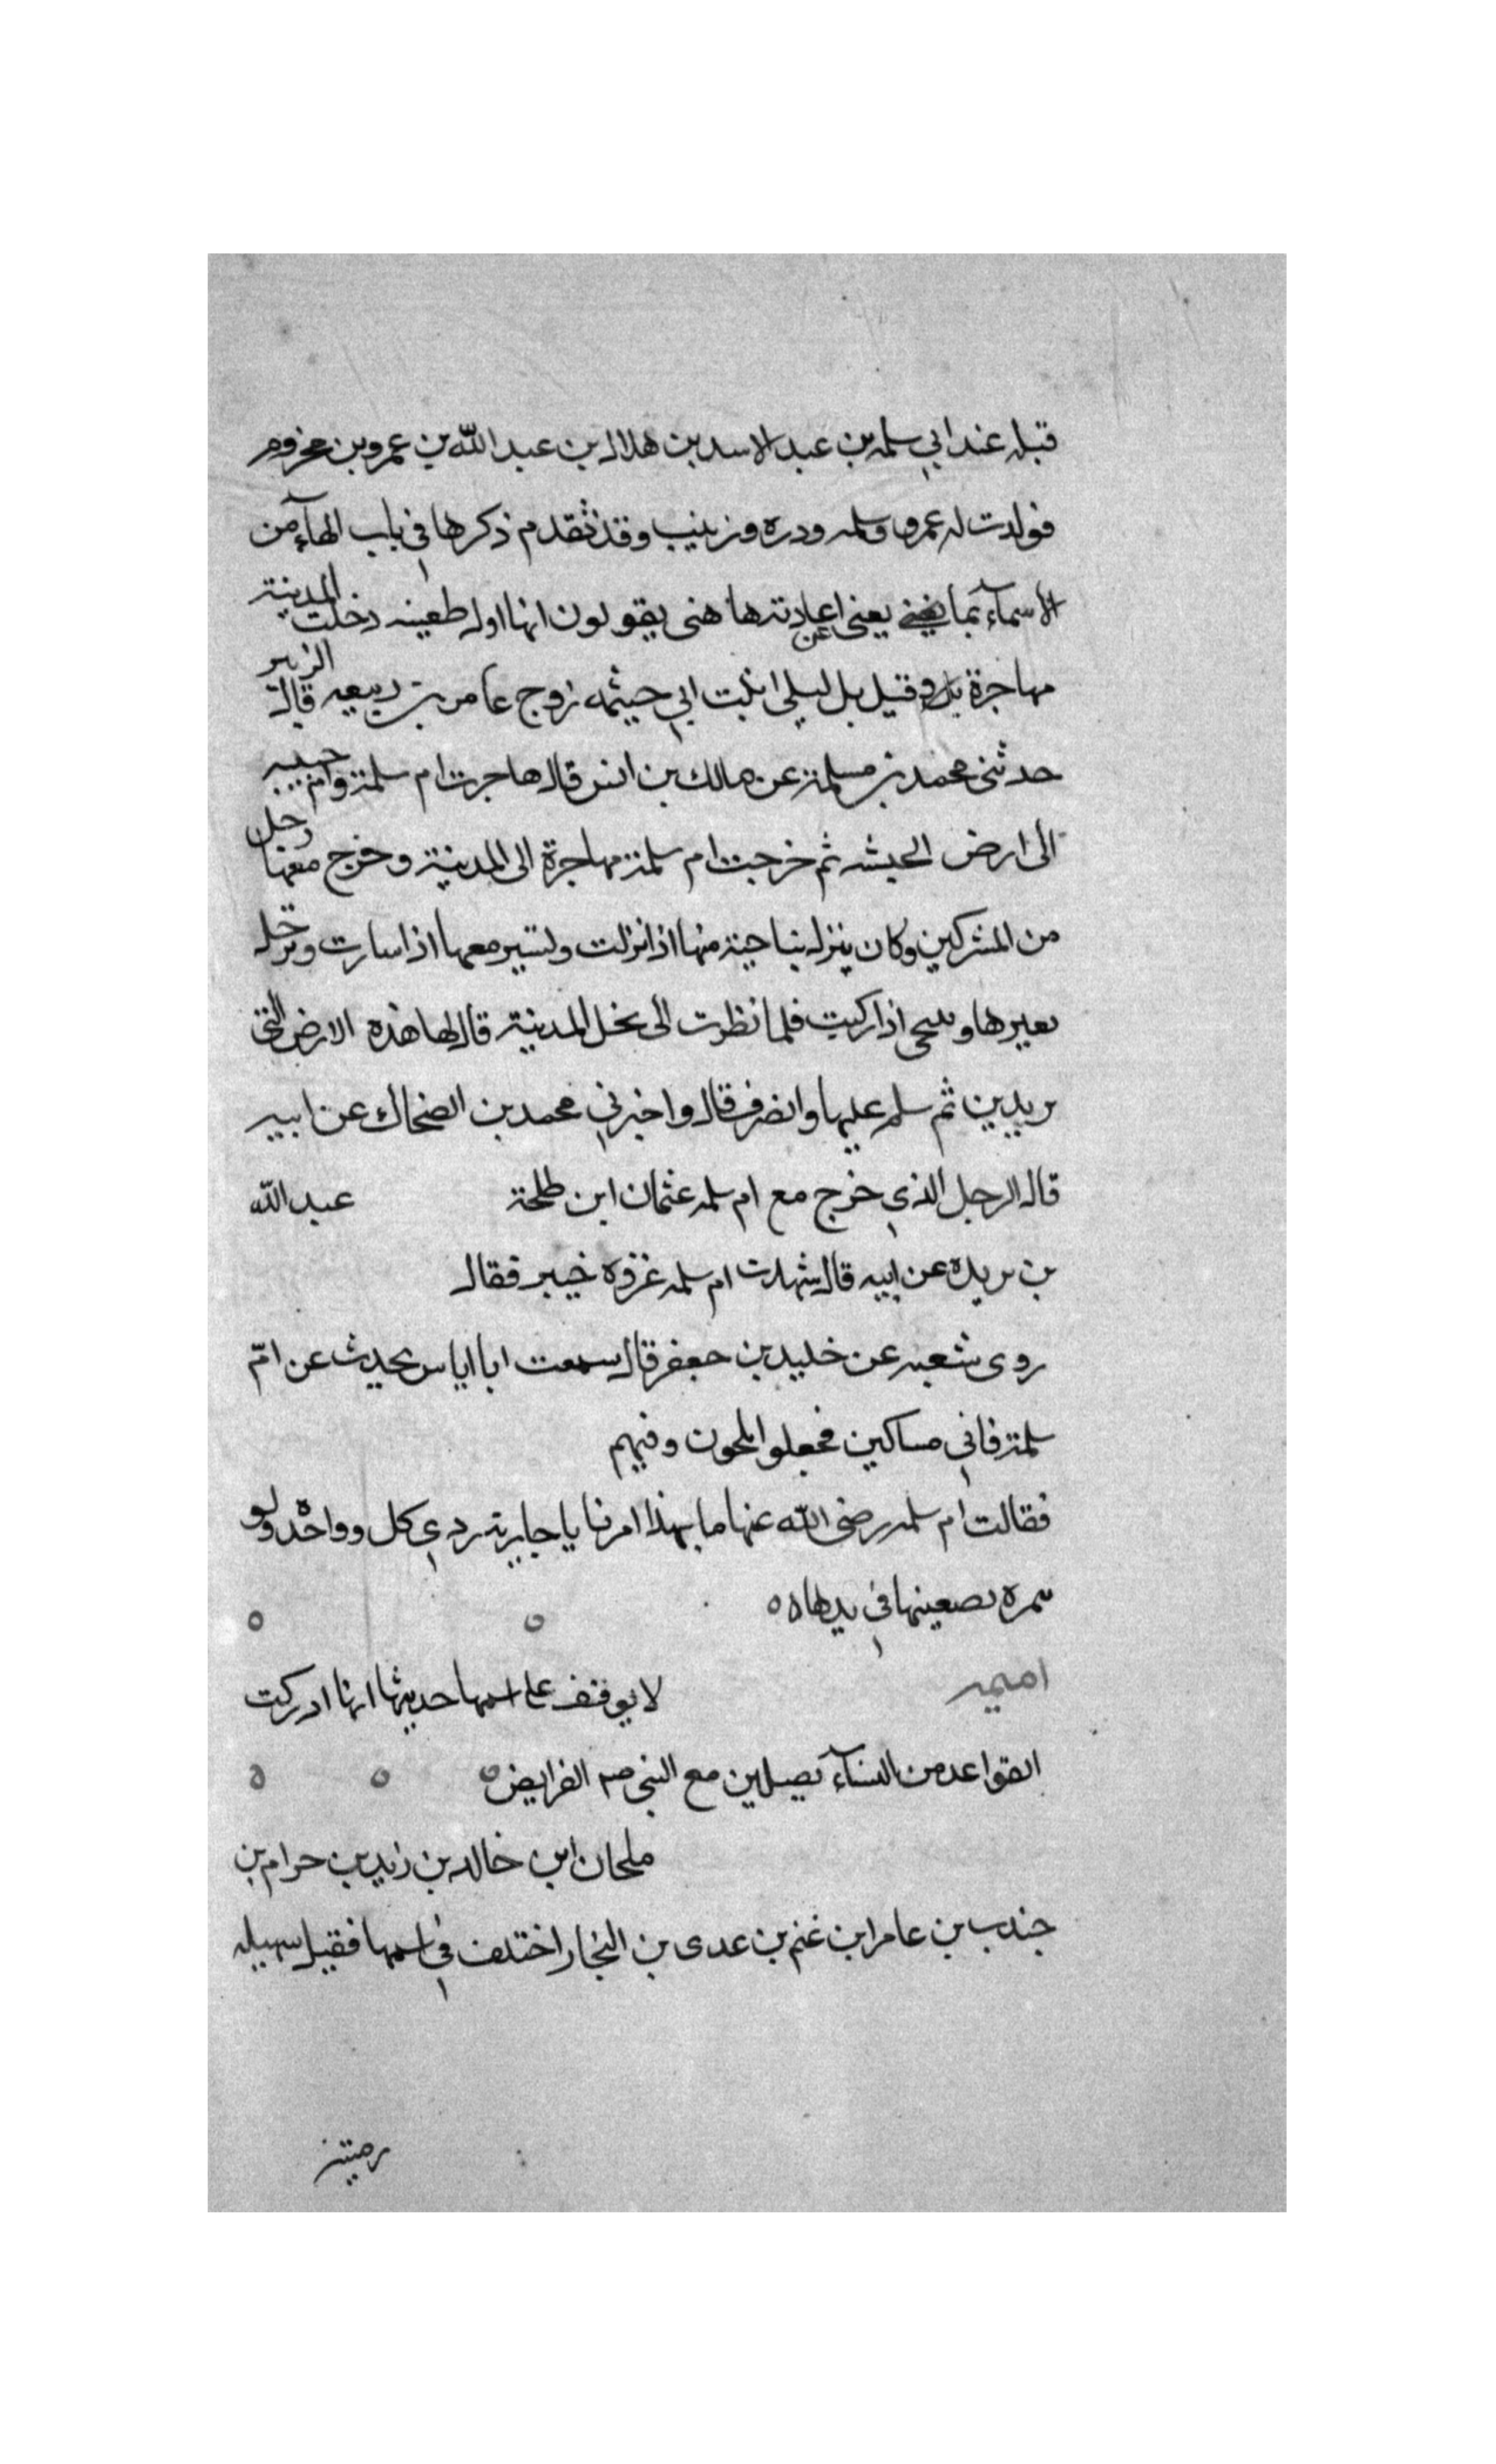 قبله عند ابي سلمه بن عبد الاسد بن هلال بن عبد الله بن عمرو بن مخزوم
فولدت له عمرو وسلمه ودره وزينب وقد تقدم ذكرها في باب الهآء من
الاسمآء بما يغني يعني عن اعادتها هنى يقولون انها اول ظعينه دخلت المدينة
مهاجرة وقيل بل ليلى ابنت ابي حيثمه زوج عامر بن ربيعه قال الزبير
حدثنى محمد بن مسلمة عن مالك بن انس قال هاجرت ام سلمة وام حبيبه
الى ارض الحبشه ثم خرجت ام سلمة مهاجرة الى المدينة وخرج معها رجل
من المشركين وكان ينزل بناحية منها اذا نزلت ويسير معها اذا سارت ويرحل
بعيرها ويتنحى اذا ركبت فلما نظرت الى نخل المدينة قال لها هذه الارض التى
تريدين ثم سلم عليها وانصرف قال واخبرني محمد بن الضحاك عن ابيه
قال الرجل الذي خرج مع ام سلمه عثمان ابن طلحة عبد الله
بن بريده عن ابيه قال شهدت ام سلمه غزوه خيبر فقال
روى شعبه عن خليد بن جعفر قال سمعت ابا اياس يحدث عن امّ
سلمة فاتي مساكين فجعلوا يلحون وفيهم
فقالت ام سلمه رضى الله عنها ما بهذا امرنا يا جارية ردي كل وواحده ولو
تمره تضعينها في يدها ه ه
اميمه لا يوقف على اسمها حديثها انها ادركت
القواعد من النسآء يصلين مع النبى صم الفرايض
ملحان ابن خالد بن زيد بن حرام بن
جندب بن عامر ابن غنم بن عدى بن النجار اختلف في اسمها فقيل سهيله
رميتة